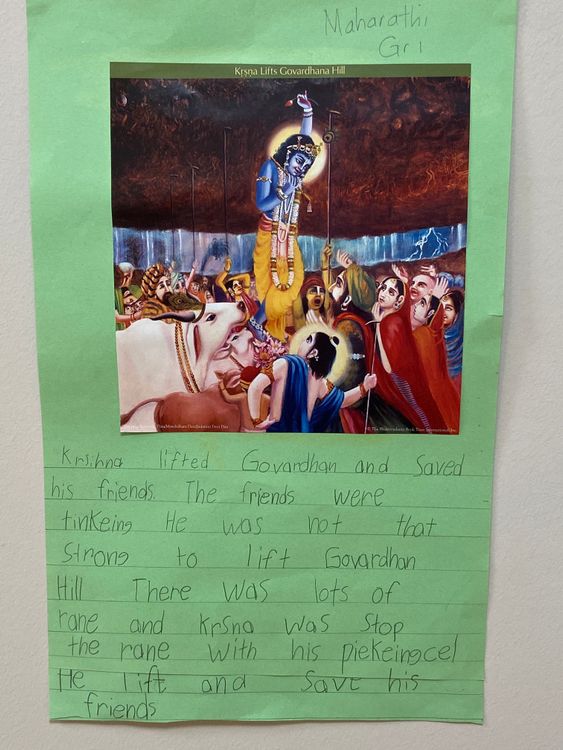 Maharathi
Gr 1
Kṛṣṇa Lifts Govardhana Hill
© The Bhaktivedanta Book Trust International, Inc.
Krsihna lifted Govardhan and Saved
his friends. The friends were
tinkeing He was not that
Strong to lift Govardhan
Hill There was lots of
rane and krsna was stop
the rane with his piekeingcel
He lift and Save his
friends